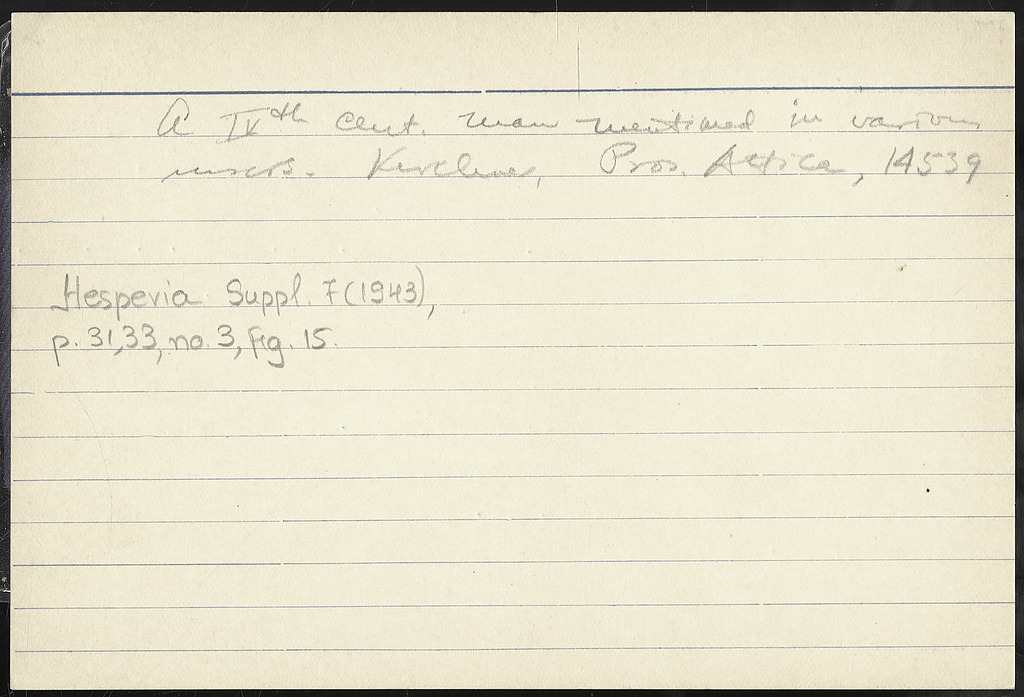 A IVth cent. man mentioned in various
inscrs. Kirchner, Pros. Attica, 14539
Hesperia Suppl. 7 (1943),
p. 31,33, no. 3, fig. 15.